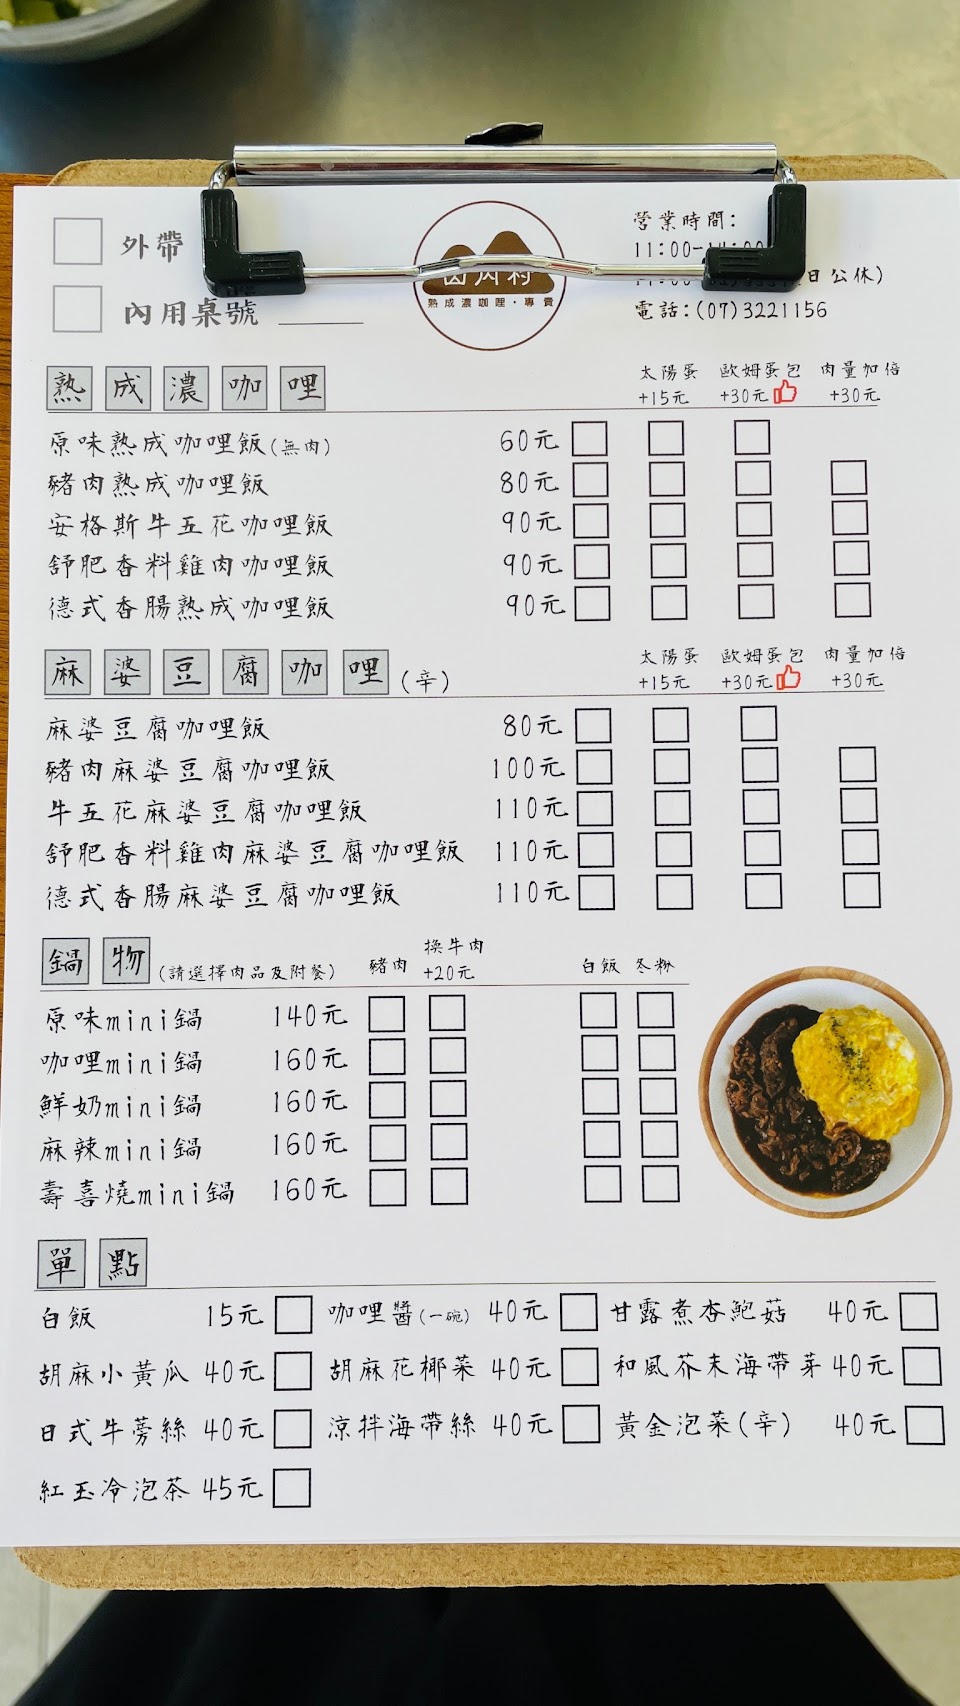 外帶
內用桌號
熟成濃咖哩・專賣
營業時間:
11:00-14:00
日公休)
電話:(07)3221156
熟成濃咖哩 太陽蛋 歐姆蛋包 肉量加倍
+15元 +30元 +30元
原味熟成咖哩飯(無肉) 60元
豬肉熟成咖哩飯 80元
安格斯牛五花咖哩飯 90元
舒肥香料雞肉咖哩飯 90元
德式香腸熟成咖哩飯 90元
麻婆豆腐咖哩(辛) 太陽蛋 歐姆蛋包 肉量加倍
+15元 +30元 +30元
麻婆豆腐咖哩飯 80元
豬肉麻婆豆腐咖哩飯 100元
牛五花麻婆豆腐咖哩飯 110元
舒肥香料雞肉麻婆豆腐咖哩飯 110元
德式香腸麻婆豆腐咖哩飯 110元
鍋物(請選擇肉品及附餐) 豬肉 換牛肉 白飯 冬粉
+20元
原味mini鍋 140元
咖哩mini鍋 160元
鮮奶mini鍋 160元
麻辣mini鍋 160元
壽喜燒mini鍋 160元
單點
白飯 15元 咖哩醬(一碗) 40元 甘露煮杏鮑菇 40元
胡麻小黃瓜 40元 胡麻花椰菜 40元 和風芥末海帶芽 40元
日式牛蒡絲 40元 涼拌海帶絲 40元 黃金泡菜(辛) 40元
紅玉冷泡茶 45元